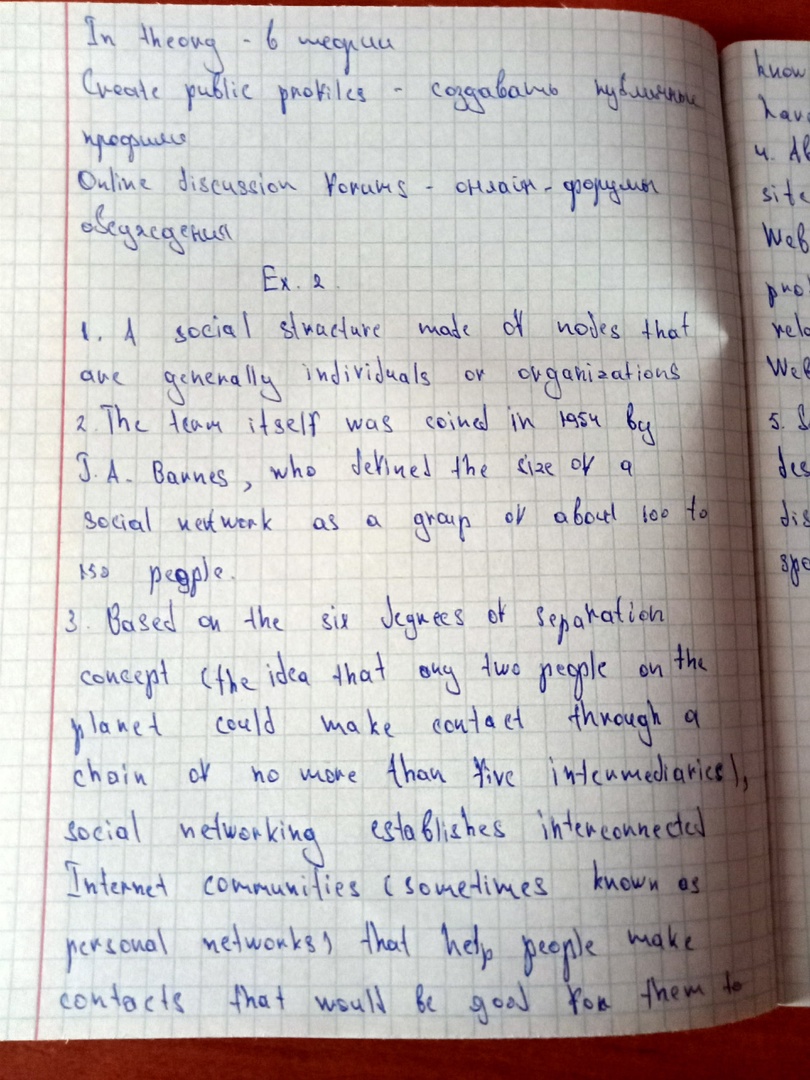 In theory - в теории
Create public profiles - создавать публичные
профили
Online discussion forums - онлайн-форумы
обсуждения
Ex. 2.
1. A social structure made of nodes that
are generally individuals or organizations
2. The team itself was coined in 1954 by
J.A. Barnes, who defined the size of a
social network as a group of about 100 to
150 people.
3. Based on the six degrees of separation
concept (the idea that any two people on the
planet could make contact through a
chain of no more than five intermediaries),
social networking establishes interconnected
Internet communities (sometimes known as
personal networks) that help people make
contacts that would be good for them to
know
have
4. Ab
site
Web
pro
rela
Web
5. S
des
dis
spe